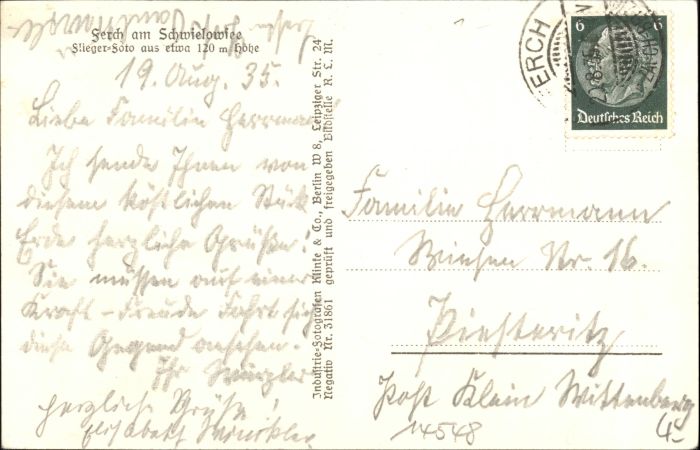 Ferch am Schwielowsee
Flieger-Foto aus etwa 120 m Höhe
19. Aug. 35.
Liebe Familie Herrmann
Ich sende Ihnen von
diesem köstlichen Stück
Erde herzliche Grüße!
Sie müssen auf einer
Kraft-Freude Fahrt sich
diese Gegend ansehen.
Ihr Winkler
herzliche Grüße!
Elisabeth Winkler
Industrie-Fotografen Klinke & Co., Berlin W 8, Leipziger Str. 24
Negativ Nr. 31861 geprüft und freigegeben Bildstelle R. L. M.
FERCH
6 6
Deutsches Reich
Familie Herrmann
Wiesen Nr. 16.
Piesteritz
Post Klein Wittenberg
14548
4,-